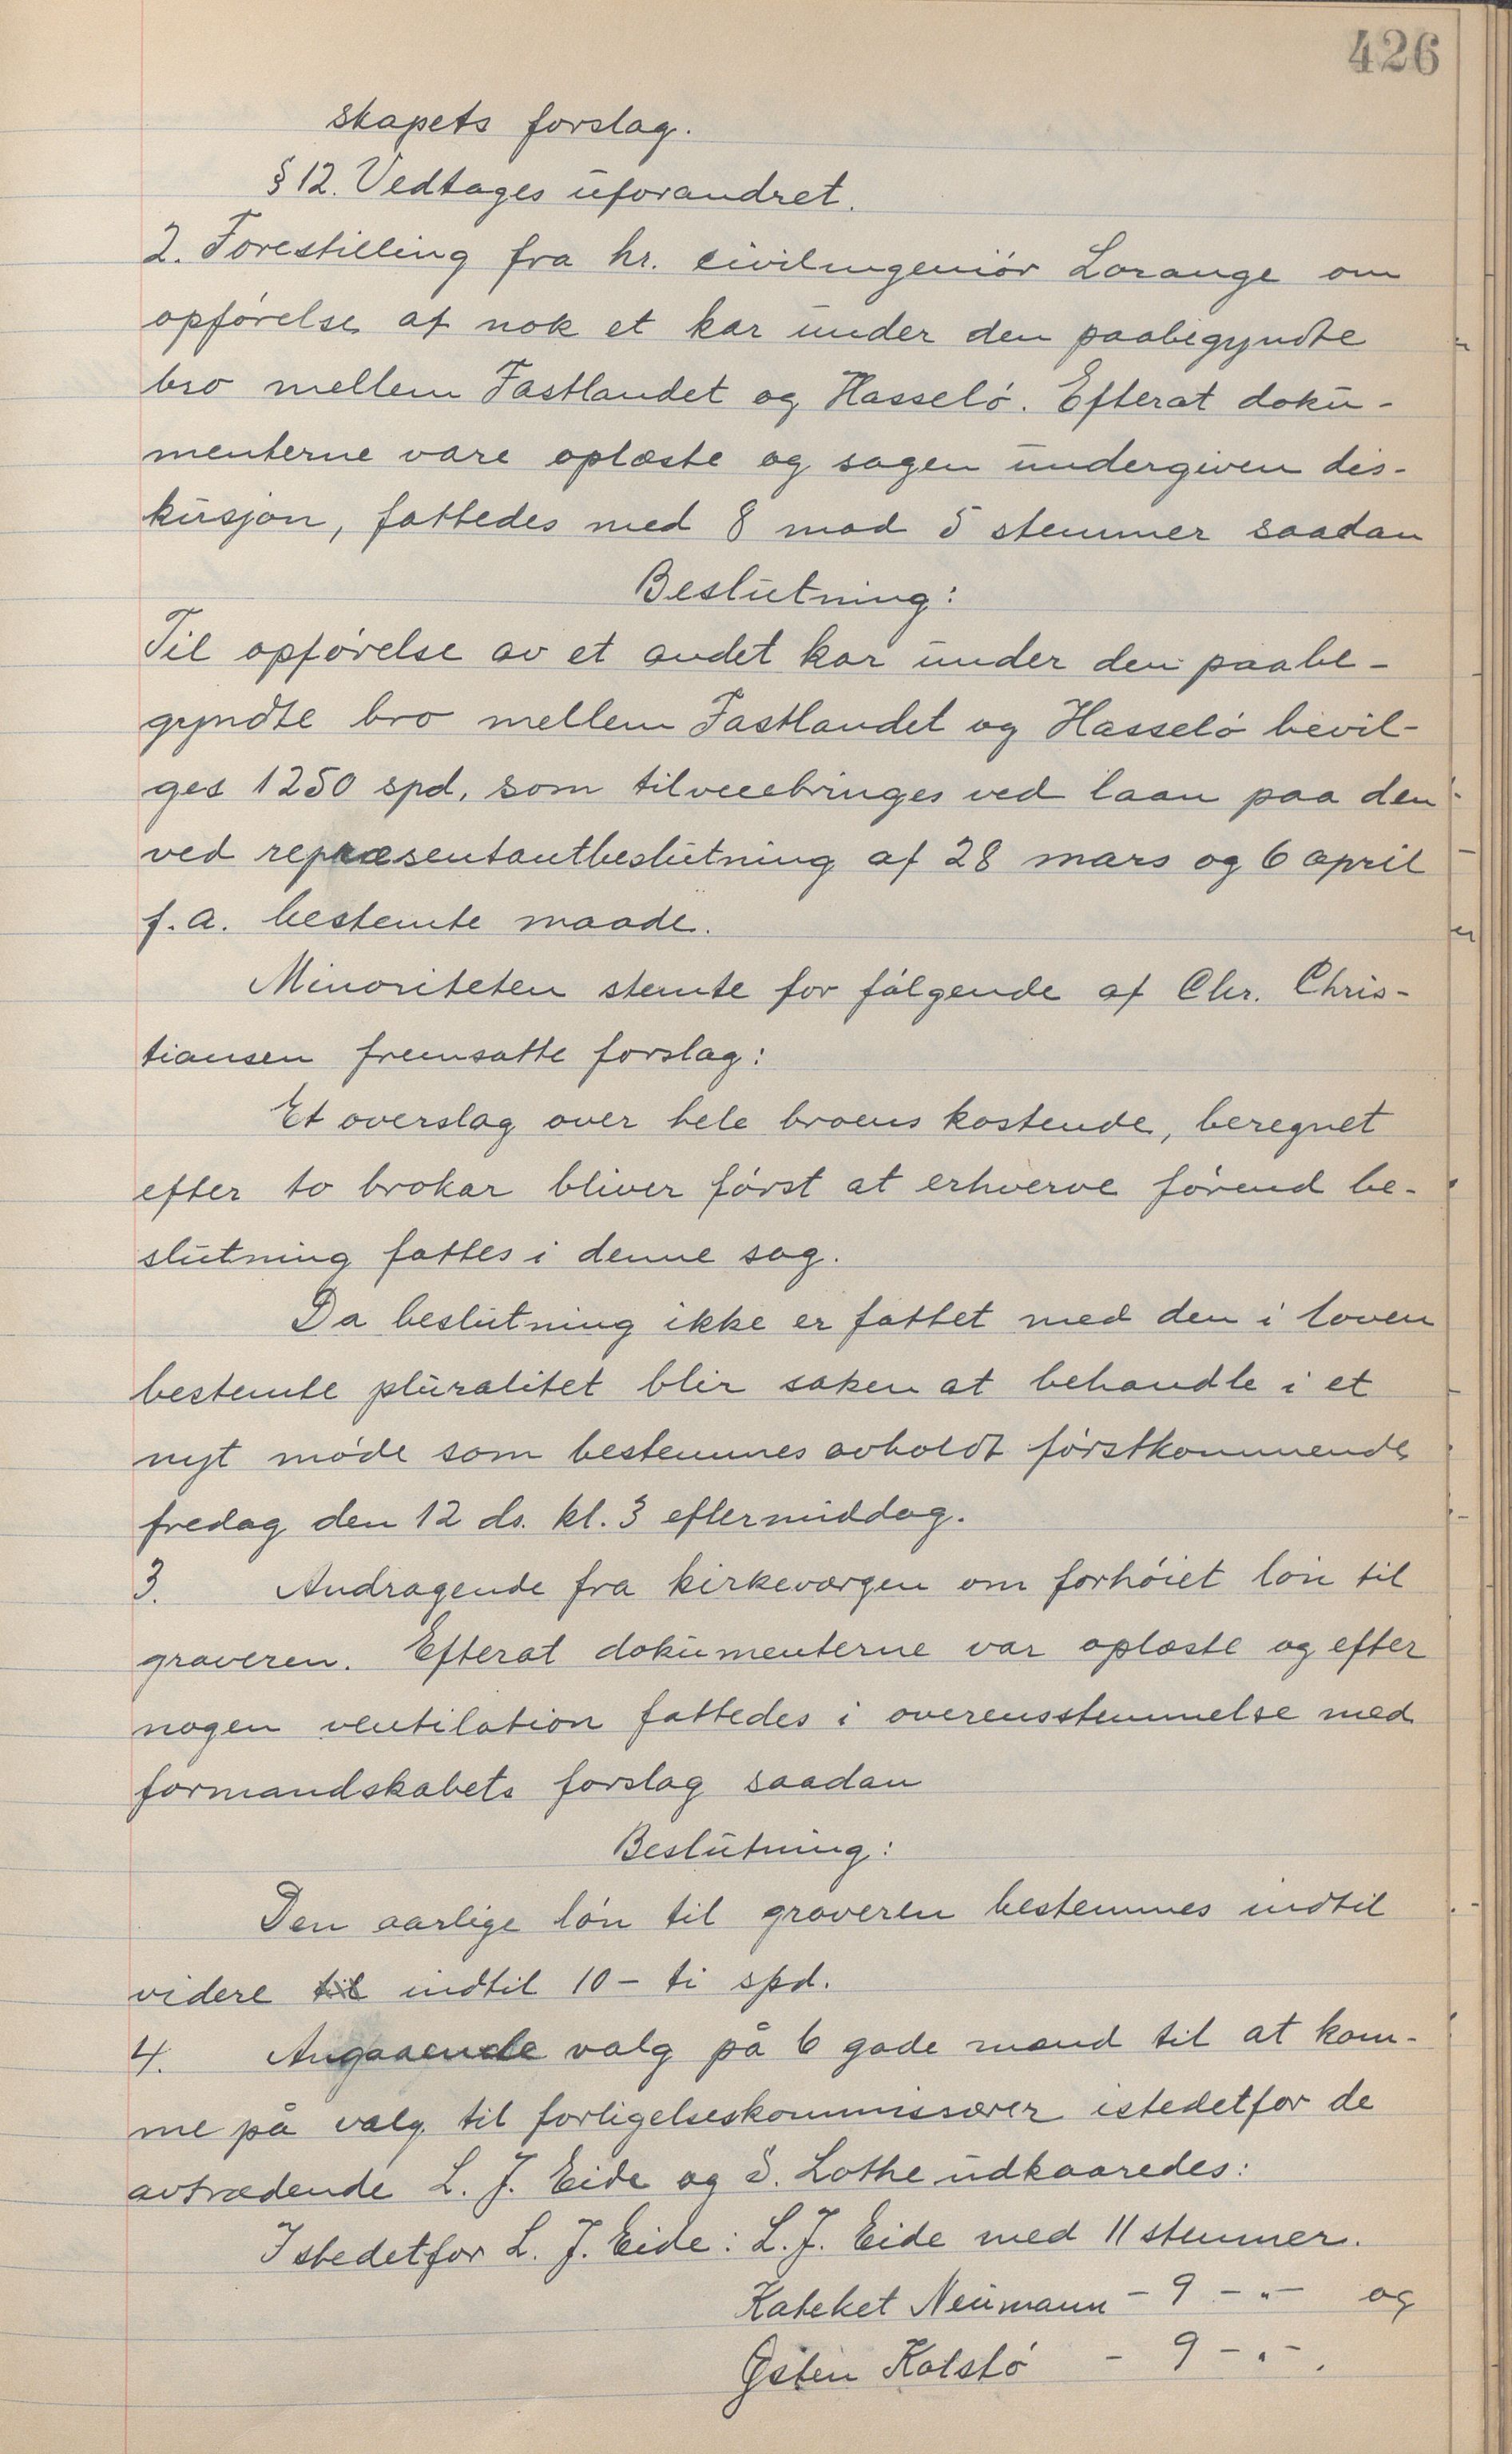 426
skapets forslag.
§ 12. Vedtages uforandret.
2. Forestilling fra hr. civilingeniör Lorange om
opförelse af nok et kar under den paabegyndte
bro mellem Fastlandet og Hasselö. Efterat doku-
menterne vare oplæste og sagen undergiven dis-
kusjon, fattedes med 8 mod 5 stemmer saadan
Beslutning:
Til opförelse av et andet kar under den paabe-
gyndte bro mellem Fastlandet og Hasselö bevil-
ges 1250 spd, som tilveiebringes ved laan paa den
ved repræsentantbeslutning af 28 mars og 6 april
f. a. bestemte maade.
Minoriteten stemte for fölgende af Chr. Chris-
tiansen fremsatte forslag:
Et overslag over hele broens kostende, beregnet
efter to brokar bliver först at erhverve förend be-
slutning fattes i denne sag.
Da beslutning ikke er fattet med den i loven
bestemte pluralitet blir saken at behandle i et
nyt möde som bestemmes avholdt förstkommende
fredag den 12 ds. kl. 3 eftermiddag.
3. Andragende fra kirkeværgen om forhöiet lön til
graveren. Efterat dokumenterne var oplæste og efter
nogen ventilation fattedes i overensstemmelse med
formandskabets forslag saadan
Beslutning:
Den aarlige lön til graveren bestemmes indtil
videre til indtil 10 - ti spd.
4. Angaaende valg på 6 gode mænd til at kom-
me på valg til forligelseskommissærer istedetfor de
avtrædende L. J. Eide og S. Lothe udkaaredes:
Istedetfor L. J. Eide: L. J. Eide med 11 stemmer.
Kateket Neumann - 9 - " - og
Østen Kolstö - 9 - " - .